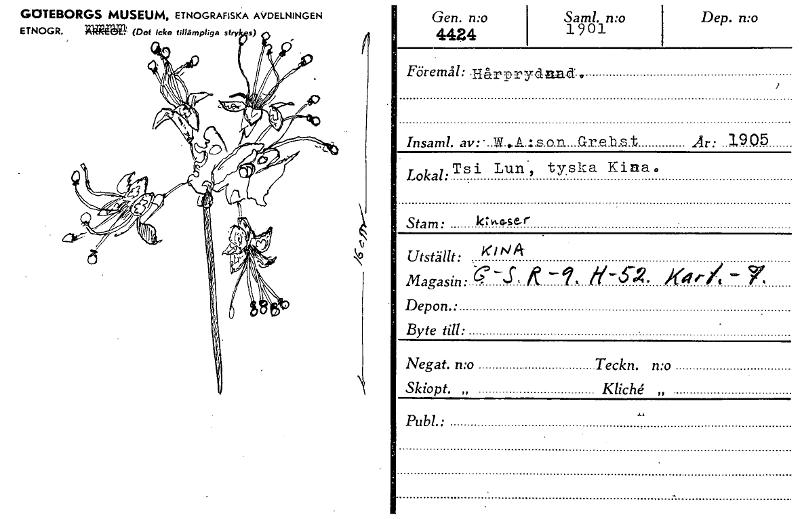 GÖTEBORGS MUSEUM, ETNOGRAFISKA AVDELNINGEN
ETNOGR. ARKEOL. (Det icke tillämpliga strykes)
16 cm
Gen. n:o Saml. n:o Dep. n:o
4424 1901
Föremål: Hårprydnad.
Insaml. av: W.A:son Grebst År: 1905
Lokal: Tsi Lun, tyska Kina.
Stam: kineser
Utställt: KINA
Magasin: G-S. R-9. H-52. Kart.-7.
Depon.:
Byte till:
Negat. n:o Teckn. n:o
Skiopt. „ Kliché „
Publ.: